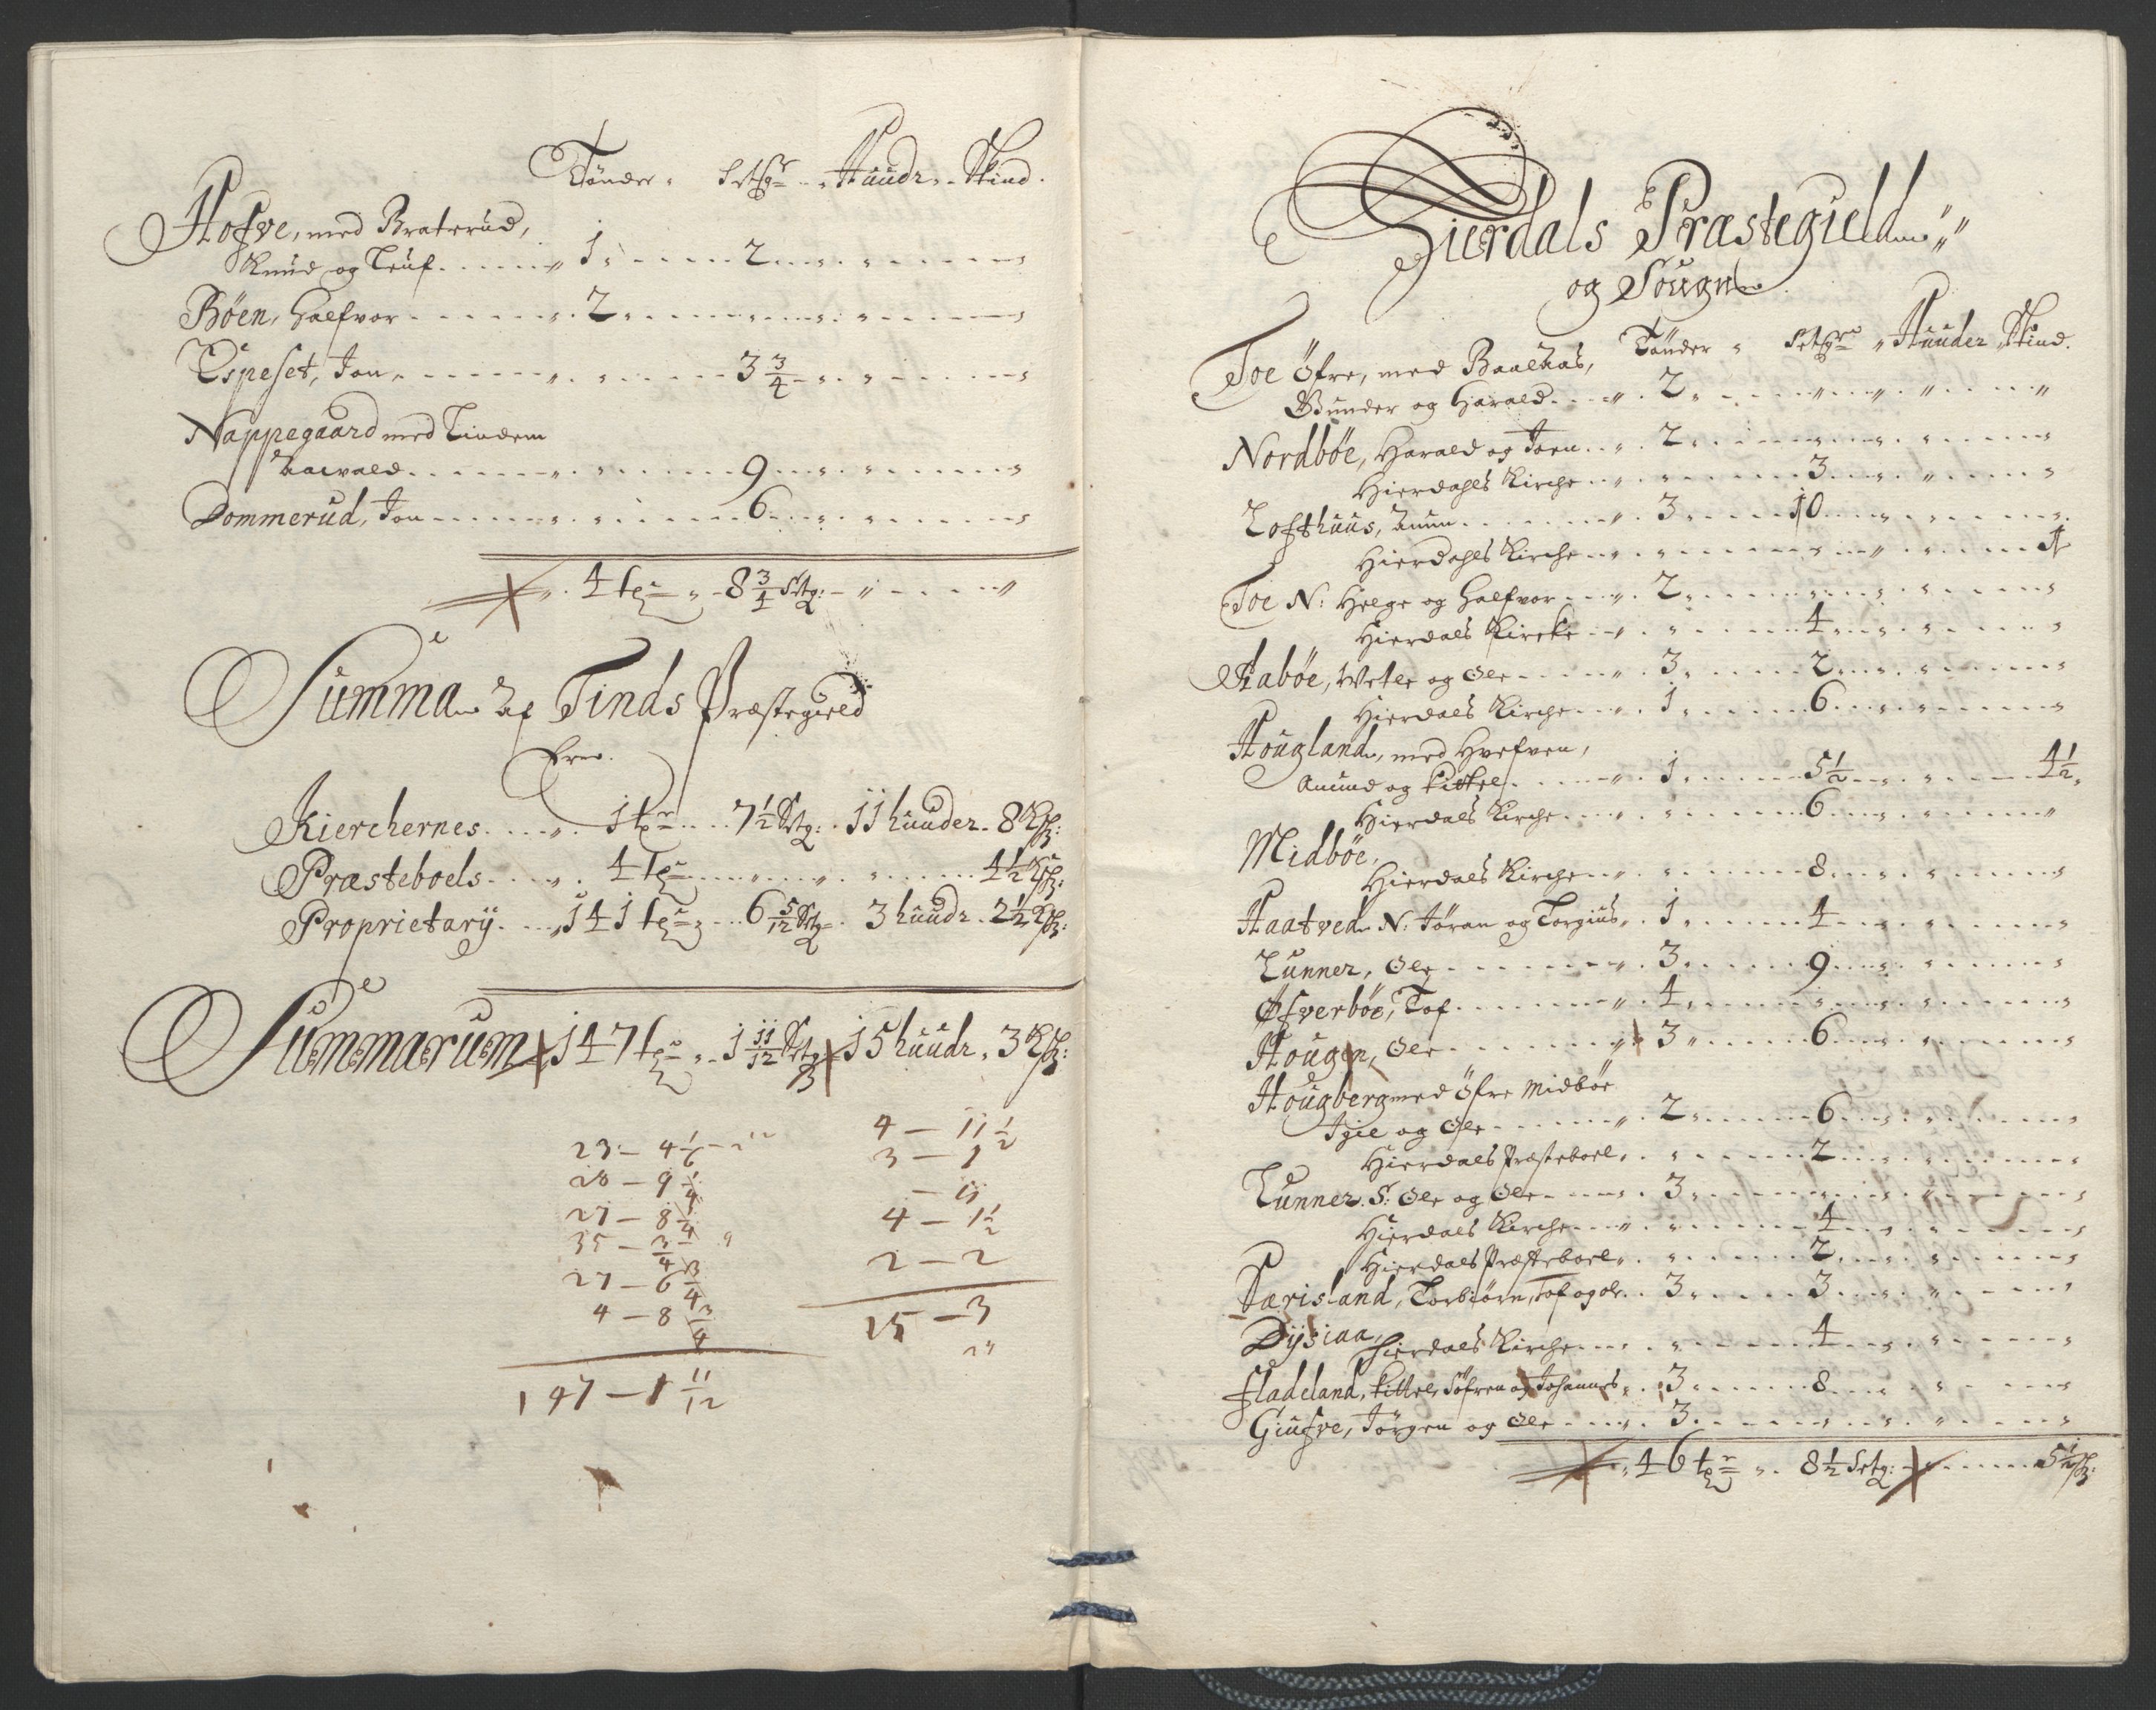 Tønder Setg:r Huudr. Skind.
Hofve, med Braterud,
Knud og Leuf 1 2
Böen, Halfvor 2
Espeset, Jon 3 3/4
Nappegaard med Lindem
Aarvald 9
Dommerud, Jon 6
4 tr 8 3/4 Setg:
Summa Af Tinds Præstegield
Er
Kierchernes 1 tr 7 1/2 Setg: 11 huuder 8
Præsteboels 4 tr 4 1/2
Proprietarÿ 141 tr 6 5/12 Setg 3 huudr 2 1/2
Summarum 147 tr 1 11/12 Setg 15 huudr 3
23 — 4 1/6
28 — 9 1/4
27 — 8 1/4
35 — 3/4
27 — 6 3/4
4 — 8 3/4
147 — 1 11/12
4 — 11 1/2
3 — 1
— 11
4 — 1 1/2
2 — 2
15 — 3
Hierdals Præstegield
og Sougn
Tønder Setg:r Huuder Skind.
Toe öfre, med Baalkas,
Gunder og Harald 2
Nordböe, Harald og Joen 2
Hierdahls Kirche 3
Lofthuus, Anun 3 10
Hierdahls Kirche 1
Toe N: Helge og Halfvor 2
Hierdals Kircke 4
Aaböe, Wetle og Ole 3 2
Hierdals Kirche 1 6
Hougland, med Hvefven,
Anund og Kittel 1 5 1/2 4 1/2
Hierdals Kirche 6
Midböe,
Hierdals Kirche 8
Haatved N: Jöran og Torgius 1 4
Lunner, Ole 3 9
Öfverböe, Tof 4
Hougen, Ole 3 6
Hougberg med Öfre Midböe
Igie og Ole 2 6
Hierdals Præsteboel 2
Lunner S: Ole og Ole 3
Hierdals Kirche 4
Hierdals Præsteboel 2
Særisland, Torbiörn, Tof og ole 3 3
Dÿsiaa, Hierdals Kirche 4
Fladeland, Kittel, Söfren og Johannes 3 8
Giufve, Jörgen og Ole 3
46 tr 8 1/2 Setg: 5 1/2